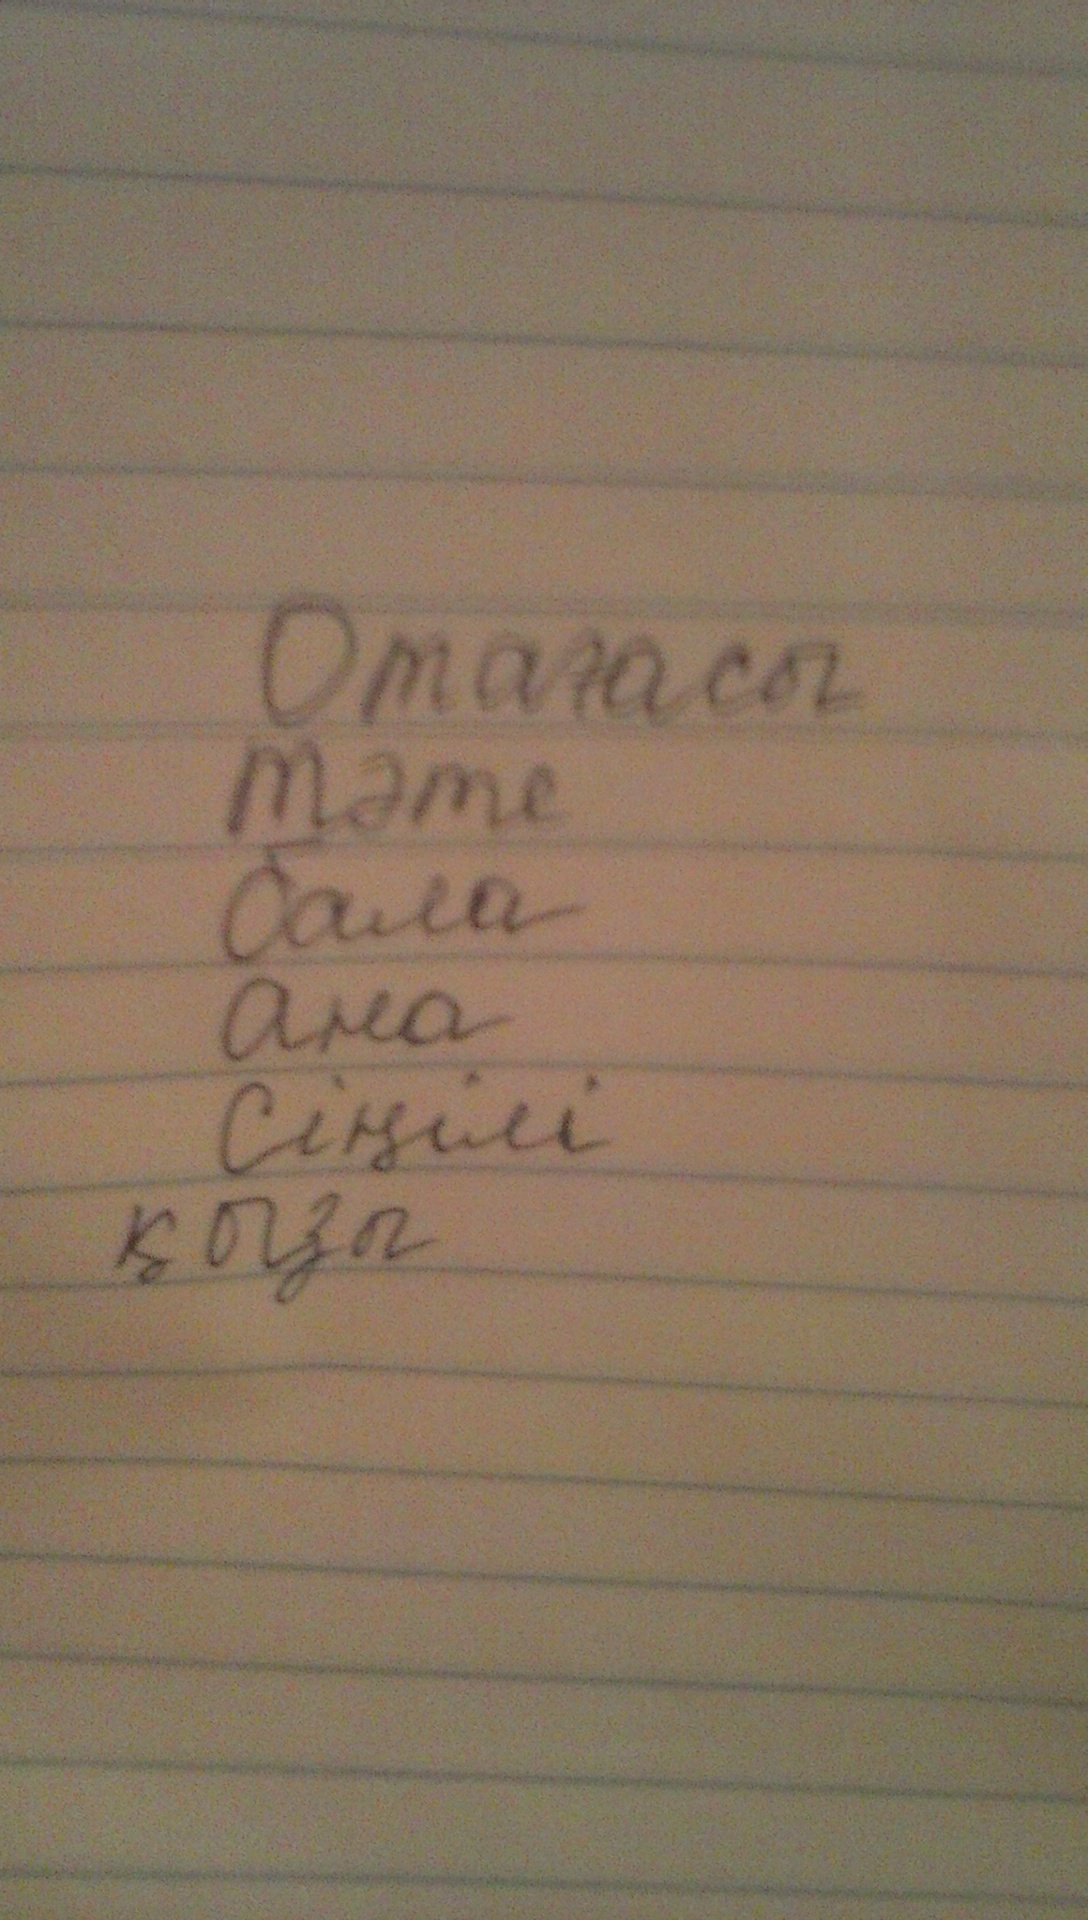 Отағасы
тәте
бала
ана
сіңілі
қызы